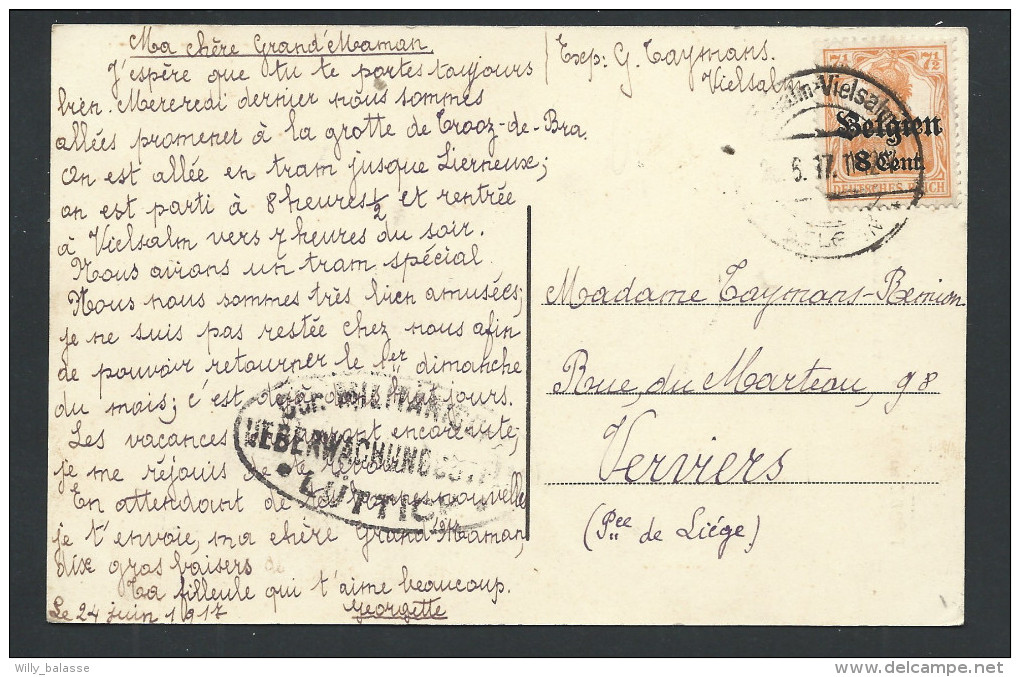 Ma chère Grand'Maman,
J'espère que tu te portes toujours
bien. Mercredi dernier nous sommes
allées promener à la grotte de Trooz-de-Bra.
On est allée en tram jusque Lierneux;
on est parti à 8 heures 1/2 et rentrée
à Vielsalm vers 7 heures du soir.
Nous avions un tram spécial.
Nous nous sommes très bien amusées;
je ne suis pas restée chez nous afin
de pouvoir retourner le 1er dimanche
du mois; c'est déjà dans jours.
Les vacances encore vite;
je me réjouis de te revoir.
En attendant de nouvelle
je t'envoie, ma chère Grand-Maman,
dix gros baisers
Ta filleule qui t'aime beaucoup.
Georgette
Le 24 juin 1917
Exp: G. Taymans.
Vielsalm
7½ 7½
Belgien
8 Cent.
DEUTSCHES REICH
Vielsalm
6.17.
Madame Taymans-Bemion
Rue du Marteau, 98
Verviers
(Pce de Liége)
MILITÄRISCHE
UEBERWACHUNGSST
LÜTTICH
Willy_balasse
www.delcampe.net